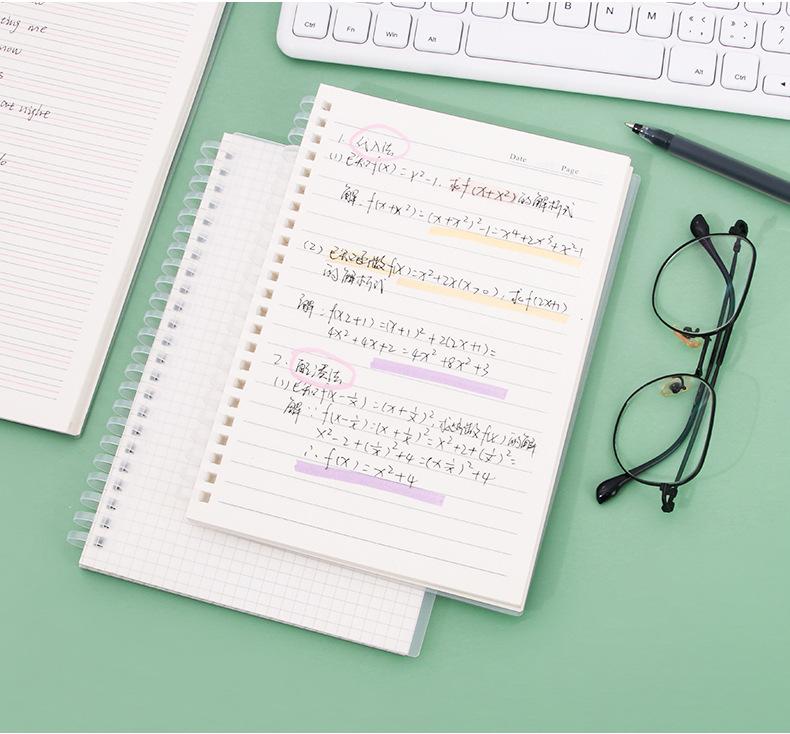 ting me
now
at night
Ctrl
Fn
Win
Alt
V
B
N
M
Alt
Ctrl
Date Page
1. 代入法
(1) 已知f(x)=x²-1. 求f(x+x²)的解析式
解. f(x+x²)=(x+x²)²-1=x⁴+2x³+x²-1
(2) 已知函数f(x)=x²+2x(x>0), 求f(2x+1)
的解析式
解: f(x2+1)=(x+1)²+2(2x+1)=
4x²+4x+2=4x²+8x²+3
2. 配凑法
(1) 已知f(x-1/x)=(x+1/x)², 求函数f(x)的解
解: f(x-1/x)=(x+1/x)²=x²+2+(1/x)²=
x²-2+(1/x)²+4=(x 1/x)²+4
∴f(x)=x²+4